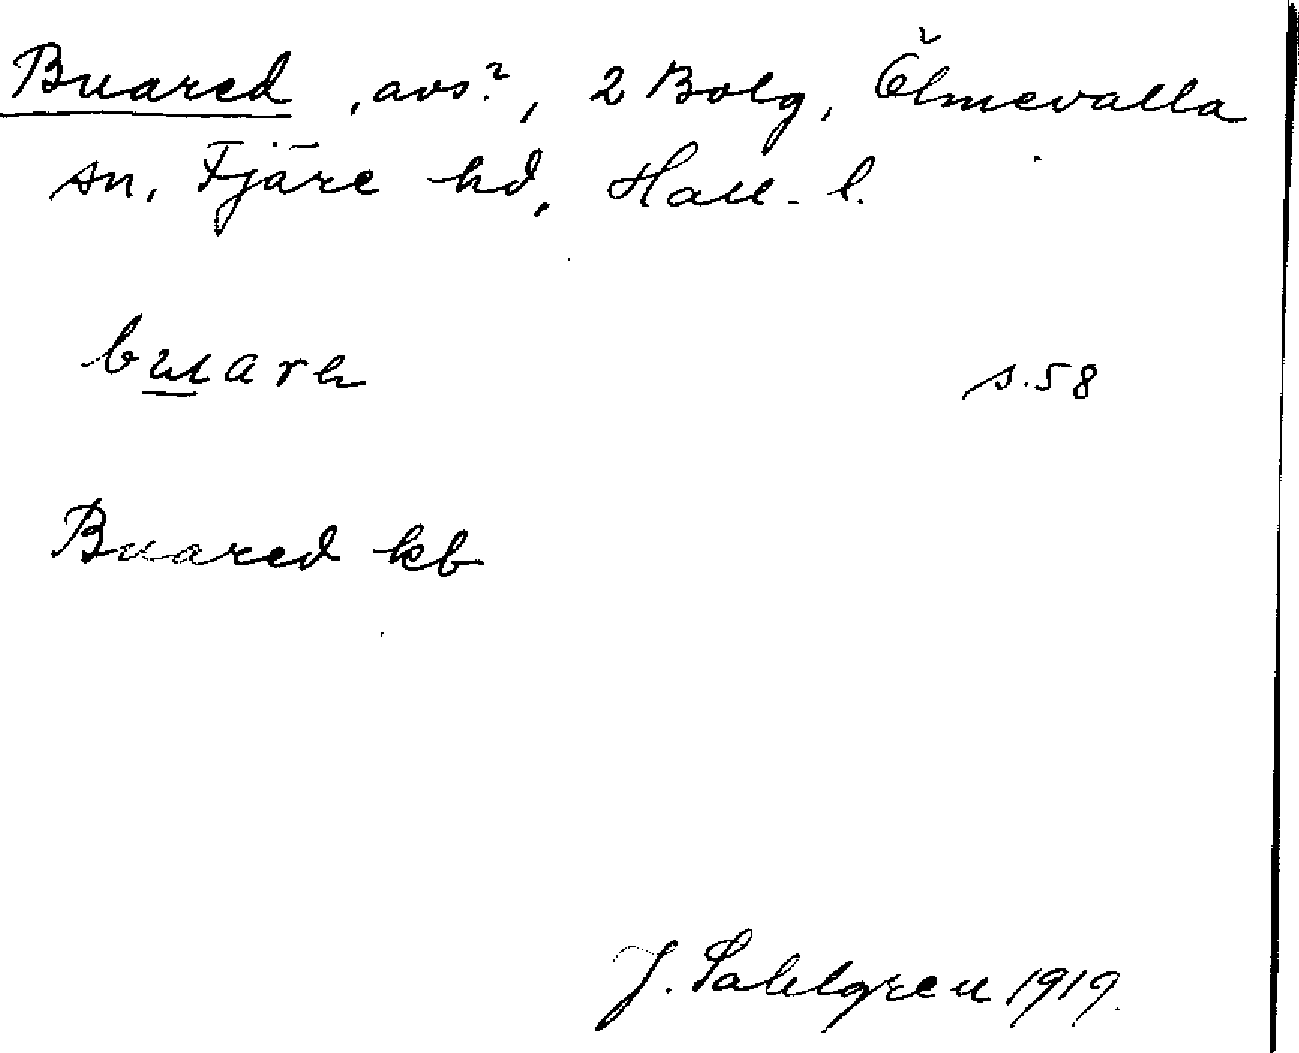 Buared, avs?, 2 Bolg, Ölmevalla
sn, Fjäre hd, Hall. l.
buarh s.58
Buared kb
J. Sahlgren 1919.